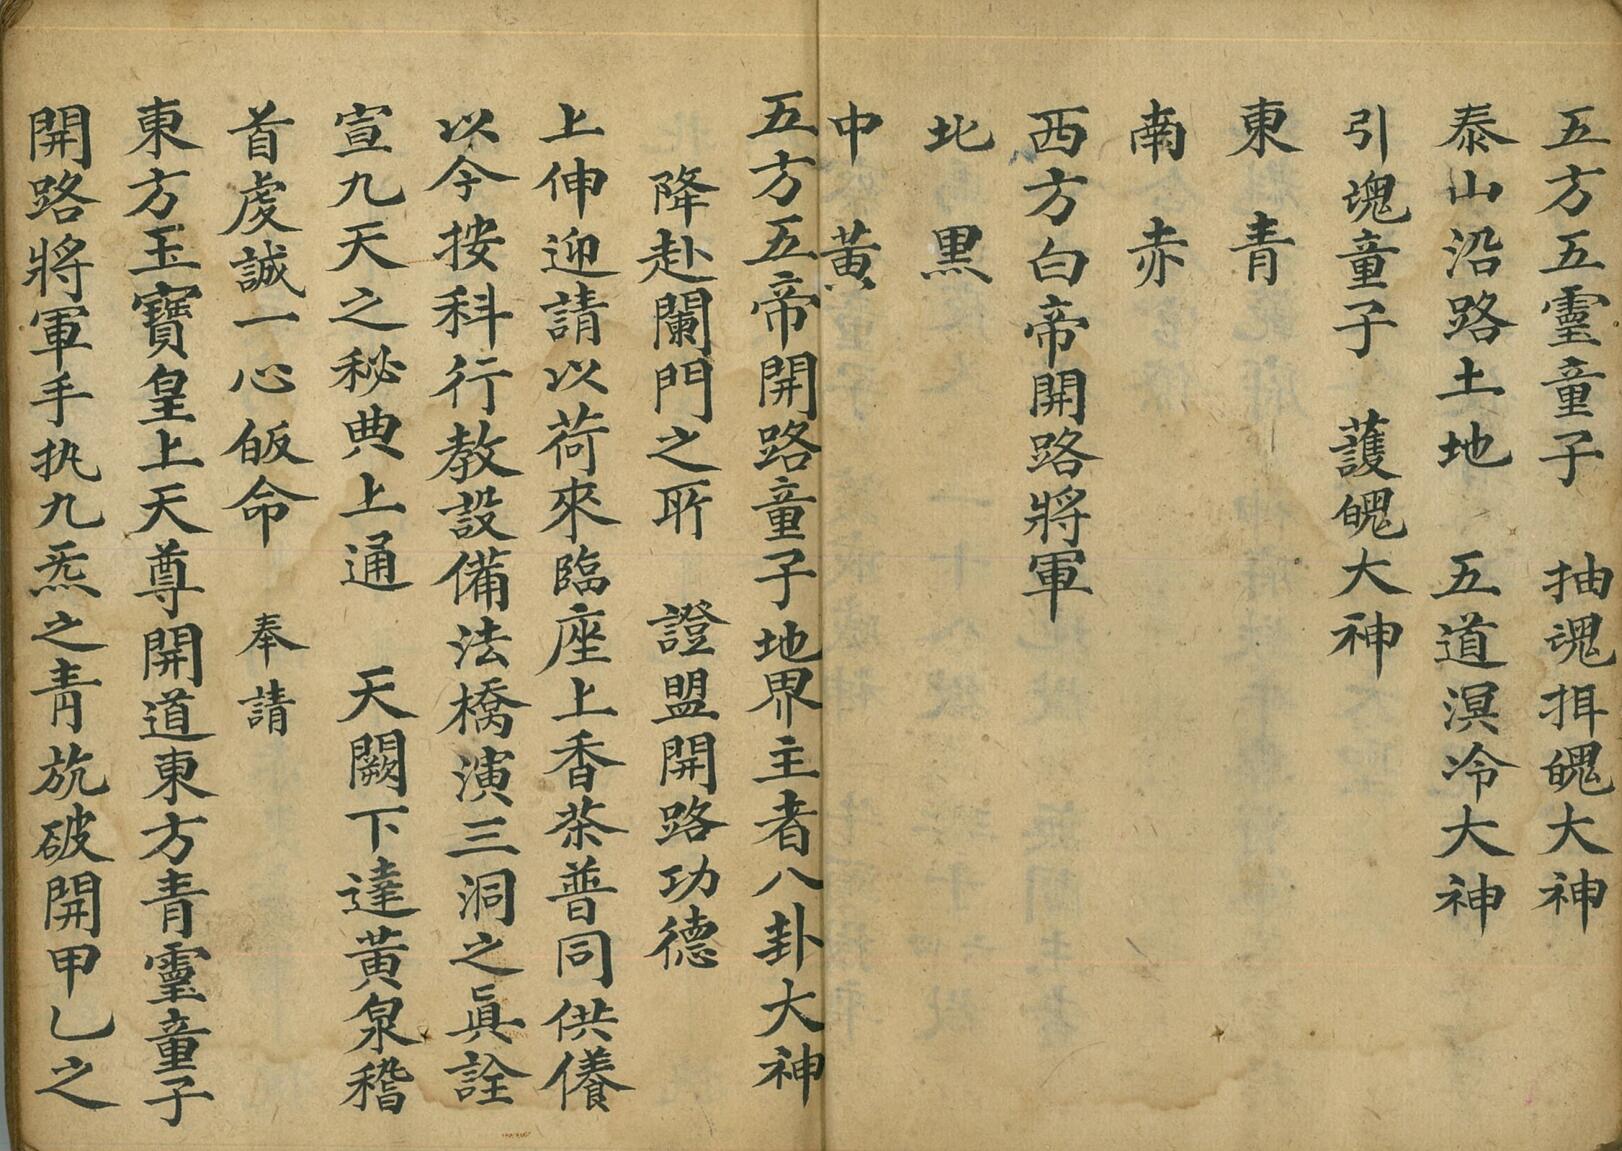 五方五靈童子　抽魂拑魄大神
泰山沿路土地　五道溟冷大神
引魂童子　護魄大神
東　青
南　赤
西方白帝開路將軍
北　黑
中　黃
五方五帝開路童子地界主者八卦大神
降赴闌門之所　證盟開路功德
上伸迎請以荷來臨座上香茶普同供養
以今按科行教設備法橋演三洞之眞詮
宣九天之秘典上通　天闕下達黃泉稽
首虔誠一心皈命　奉請
東方玉寶皇上天尊開道東方青靈童子
開路將軍手执九炁之青旐破開甲乙之